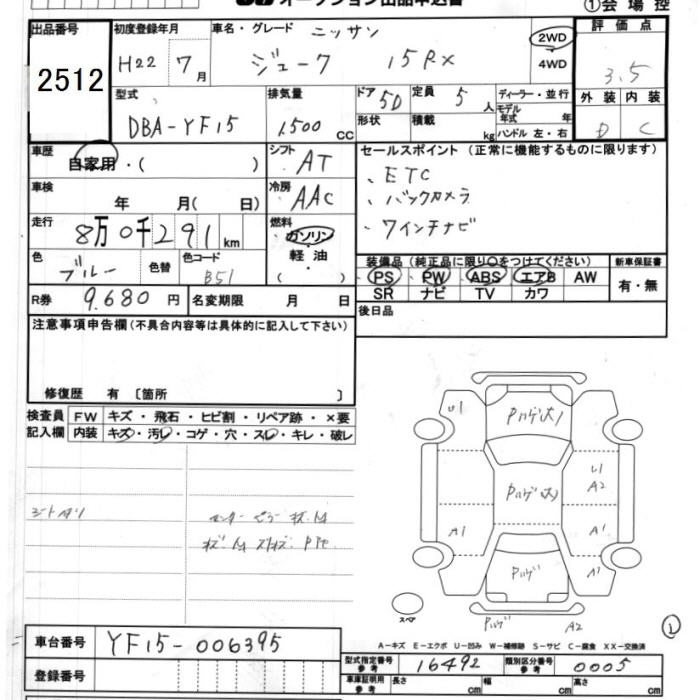 オークション出品申込書
①会場控
出品番号
2512
初度登録年月
H22 7月
車名・グレード ニッサン
ジューク 15RX
2WD
4WD
評価点
3.5
型式
DBA-YF15
排気量
1,500 CC
ドア 5D
形状
定員 5人
積載 kg
ディーラー・並行
モデル年式 年
ハンドル 左・右
外装 内装
D C
車歴
自家用・( )
シフト AT
セールスポイント (正常に機能するものに限ります)
、ETC
、バックカメラ
、7インチナビ
車検
年 月( 日)
冷房 AAC
走行
8万0千291km
燃料
ガソリン
軽油
( )
色 ブルー 色替
色コード B51
装備品(純正品に限り○をつけてください)
PS PW ABS エアB AW
SR ナビ TV カワ
新車保証書
有・無
R券 9,680円
名変期限 月 日
後日品
注意事項申告欄(不具合内容等は具体的に記入して下さい)
修復歴 有 〔箇所 〕
検査員記入欄
FW キズ・飛石・ヒビ割・リペア跡・×要
内装 キズ・汚レ・コゲ・穴・スレ・キレ・破レ
U1
Pハゲ(大)
U1
A2
Pハゲ(大)
A1
A1
Pハゲ
A1
スペア
Pハゲ
A2
A-キズ E-エクボ U-凹み W-補修跡 S-サビ C-腐食 XX-交換済
車台番号 YF15-006395
登録番号
型式指定番号 参考 16492
類別区分番号 参考 0005
車庫証明用 参考 長さ cm 幅 cm 高さ cm